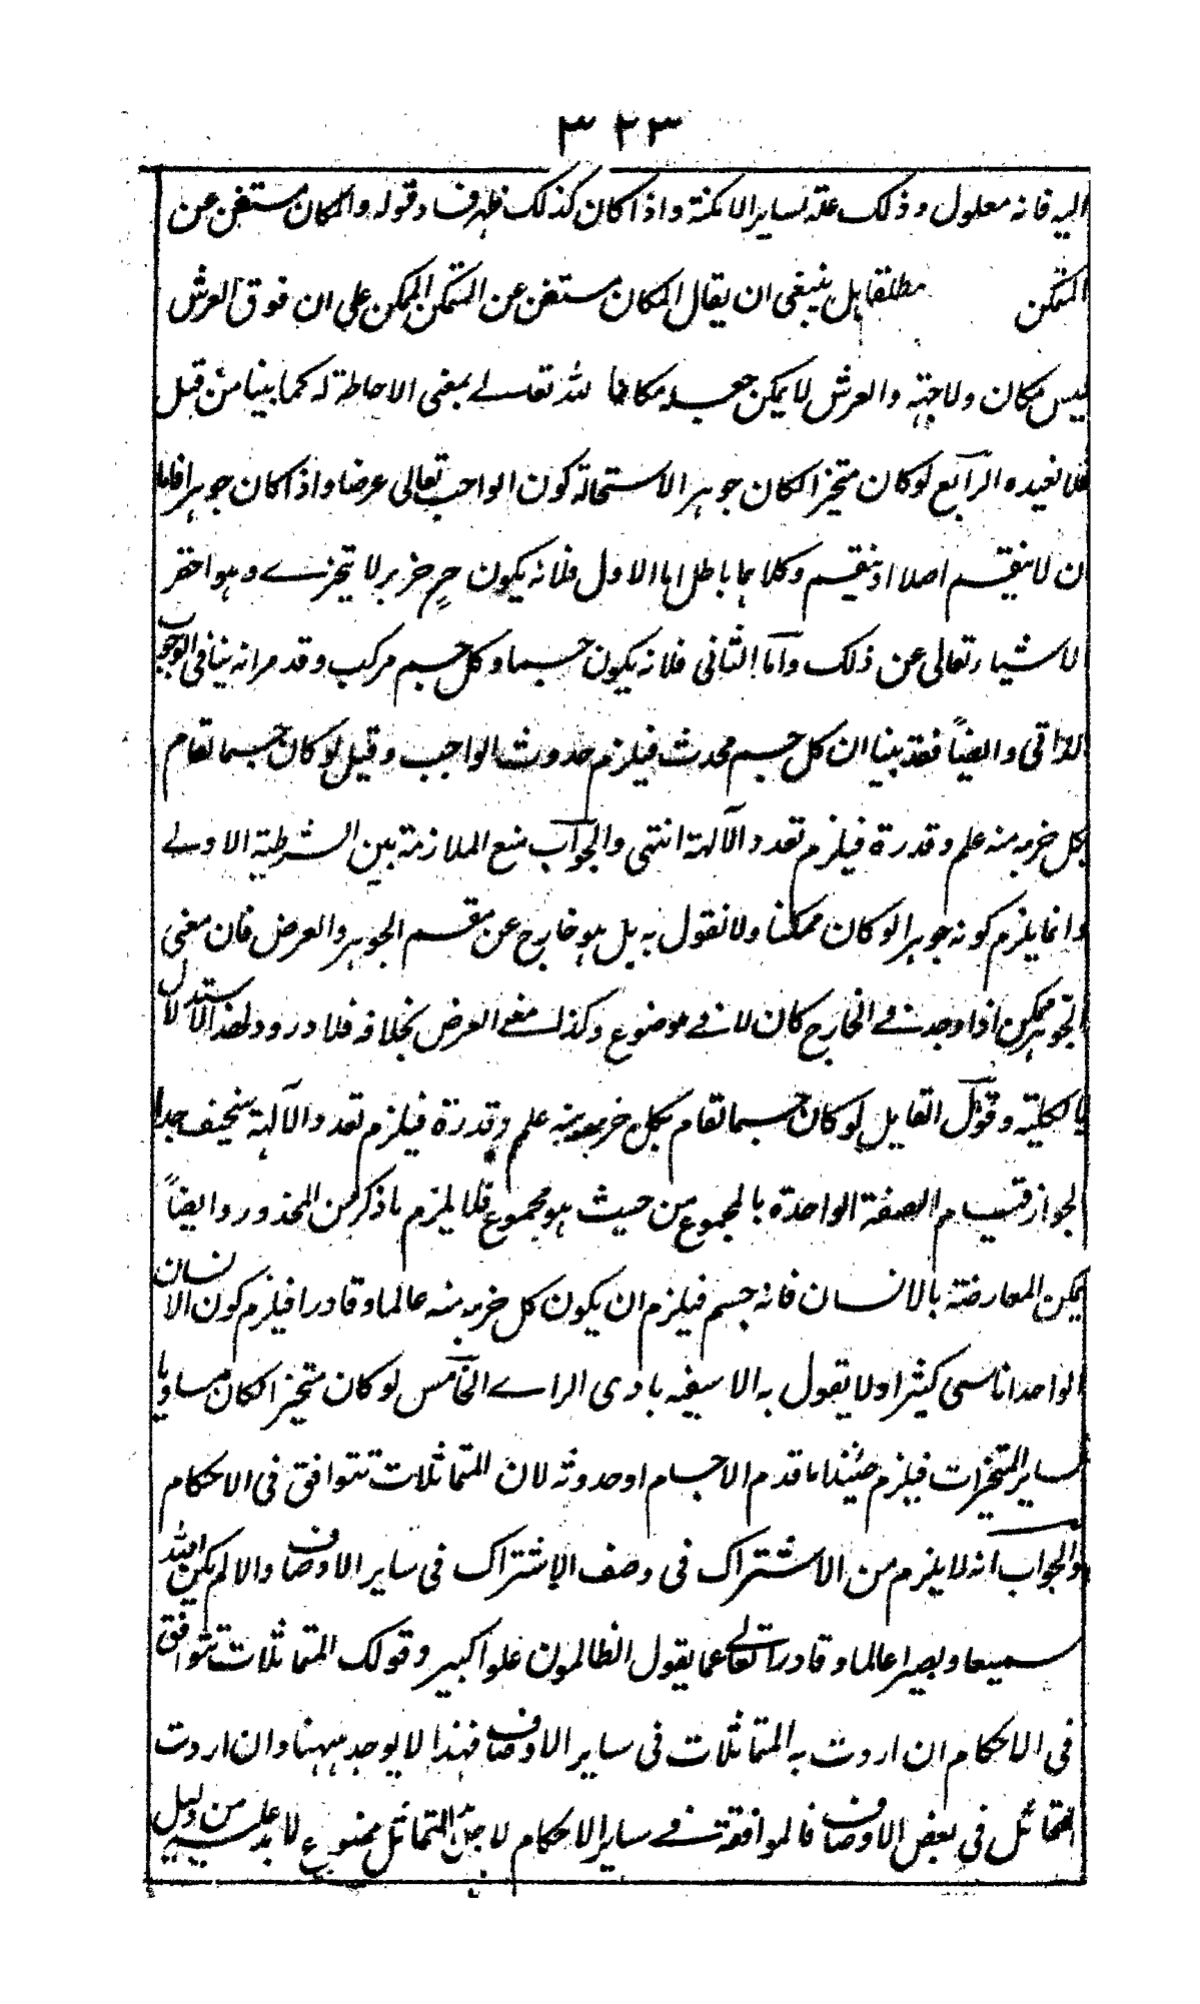 ٣٢٣
اليه فانه معلول وذلك علة لساير الامكنة واذا كان كذلك ظهر فساد قوله والمكان مستغن عن
المتمكن مطلقا بل ينبغى ان يقال المكان مستغن عن المتمكن الممكن على ان فوق العرش
ليس مكان ولا جهة والعرش لا يمكن جعله مكانا لله تعالے بمعنى الاحاطة له كما بينا من قبل
فلا نعيده الرابع لو كان متحيزا لكان جوهرا لاستحالة كون الواجب تعالى عرضا واذا كان جوهرا فاما
ان لا ينقسم اصلا او ينقسم وكلاهما باطل اما الاول فلانه يكون جزء لا يتجزے وهو احقر
الاشياء تعالى عن ذلك واما الثانى فلانه يكون جسما وكل جسم مركب وقد مر انه ينافى الوجوب
الذاتى وايضاً فقد بينا ان كل جسم محدث فيلزم حدوث الواجب وقيل لو كان جسما لقام
بكل جزء منه علم وقدرة فيلزم تعدد الآلهة انتهى والجواب منع الملازمة بين الشرطية الاولے
وانما يلزم كونه جوهرا لو كان ممكنا ولا نقول به بل هو خارج عن مقسم الجوهر والعرض فان معنى
الجوهر ممكن اذا وجد فے الخارج كان لا فے موضوع وكذلك معنے العرض بخلافه فلا درود لهذا الاستدلال
بالكلية وقول القايل لو كان جسما لقام بكل جزء منه علم وقدرة فيلزم تعدد الآلهة سخيف جدا
لجواز قيام الصفة الواحدة بالمجموع من حيث هو مجموع فلا يلزم ما ذكر من المحذور وايضاً
يمكن المعارضة بالانسان فانه جسم فيلزم ان يكون كل جزء منه عالما وقادرا فيلزم كون الانسان
الواحد اناسى كثيرا ولا يقول به الا سفيه بادى الراے الخامس لو كان متحيزا لكان مساويا
لساير المتحيزات فيلزم حينئذ اما قدم الاجسام او حدوثه لان المتماثلات تتوافق فى الاحكام
والجواب انه لا يلزم من الاشتراك فى وصف الاشتراك فى ساير الاوصاف والا لم يكن الله
سميعا وبصيرا عالما وقادرا تعالے عما يقول الظالمون علوا كبير وقولك المتماثلات تتوافق
فى الاحكام ان اردت به المتماثلات فى ساير الاوصاف فهذا لا يوجد ههنا وان اردت
التماثل فى بعض الاوصاف فالموافقة فے ساير الاحكام لاجل التماثل ممنوع لا بد عليه من دليل